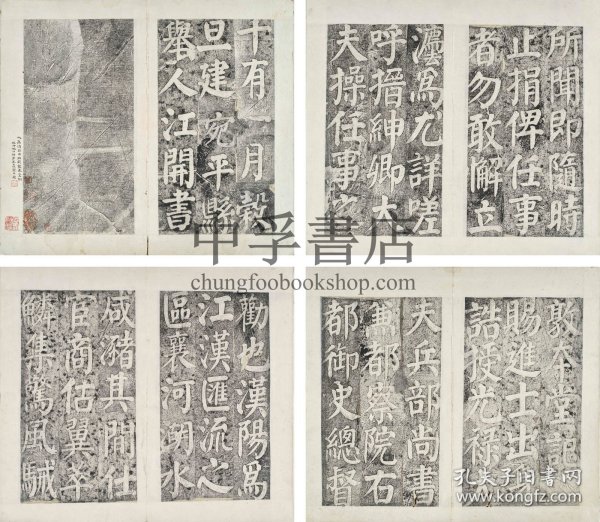 十有一月穀
旦建宛平縣
舉人江開書
所聞即隨時
止捐俾任事
者勿敢懈立
灋爲尤詳嗟
呼搢紳卿大
夫操任事
勸也漢陽爲
江漢匯流之
區襄河朔水
咸瀦其間仕
官商估翼萃
鱗集驚風駴
敦本堂記
賜進士出
誥授光祿
夫兵部尚書
兼都察院右
都御史總督
中孚書店
chungfoobookshop.com
孔夫子旧书网
kongfz.com